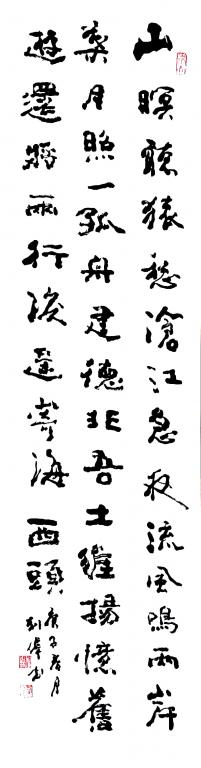 山暝聽猿愁滄江急夜流風鳴兩岸
葉月照一孤舟建德非吾土維揚憶舊
遊還將兩行淚遙寄海西頭
庚子春月